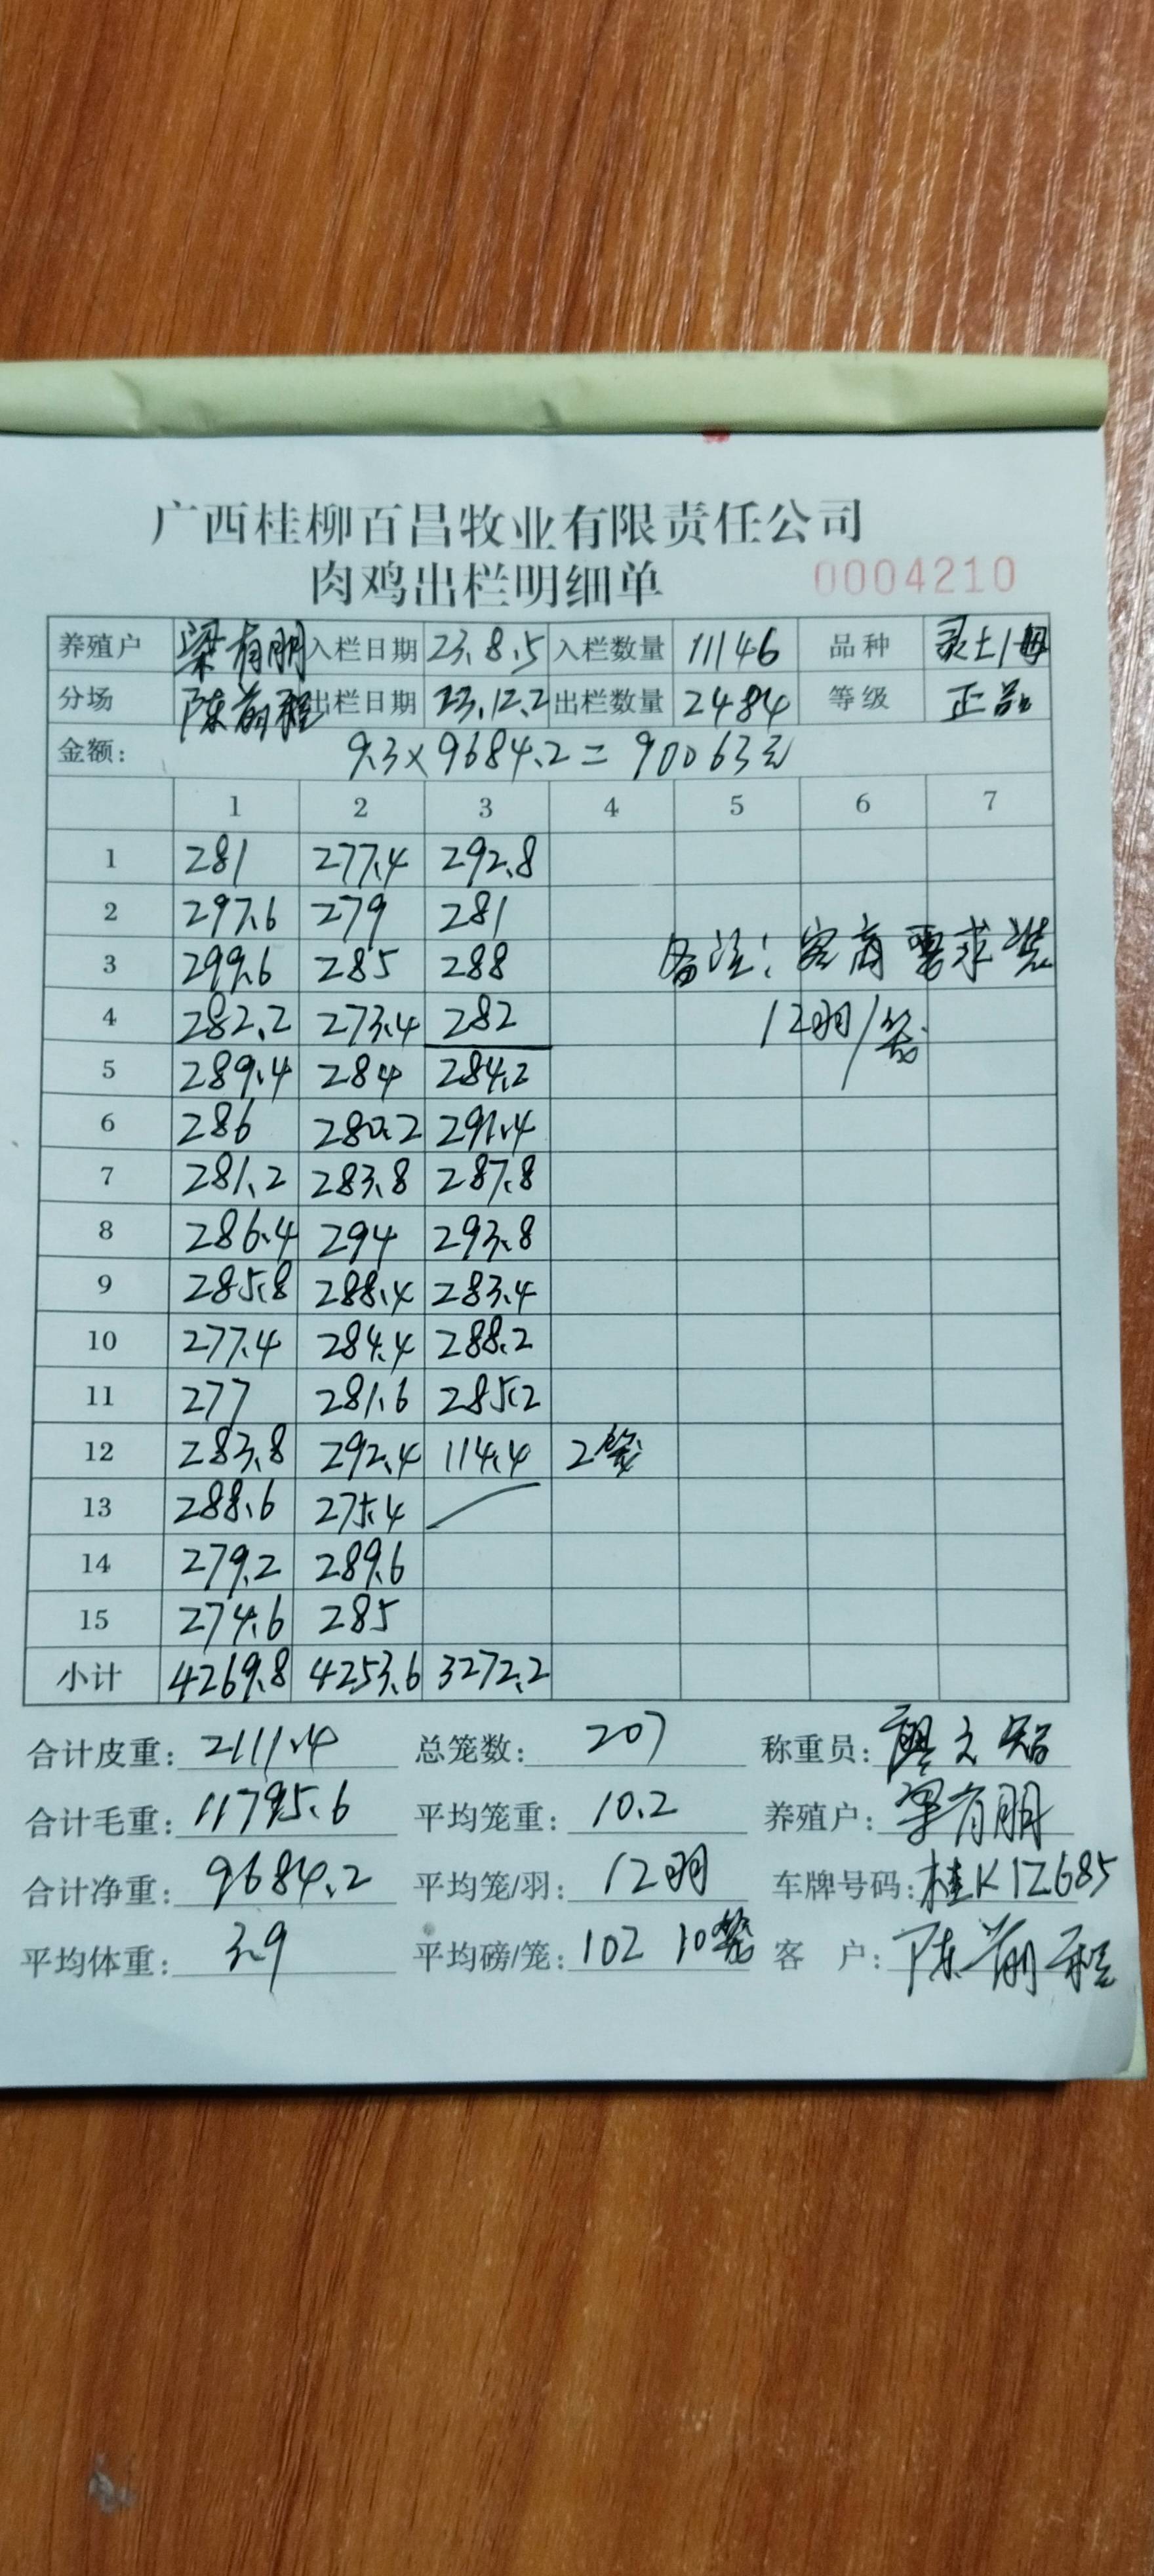 广西桂柳百昌牧业有限责任公司
肉鸡出栏明细单 0004210
养殖户 梁有朋 入栏日期 23.8.5 入栏数量 11146 品种 灵土1母
分场 陈前程 出栏日期 23.12.2 出栏数量 2484 等级 正品
金额: 9.3×9684.2=90063元
1 2 3 4 5 6 7
1 281 277.4 292.8
2 297.6 279 281
3 299.6 285 288 备注:客商要求装
4 282.2 273.4 282 12羽/笼
5 289.4 284 284.2
6 286 280.2 291.4
7 281.2 283.8 287.8
8 286.4 294 293.8
9 285.8 288.4 283.4
10 277.4 284.4 288.2
11 277 281.6 285.2
12 283.8 292.4 114.4 2笼
13 288.6 275.4
14 279.2 289.6
15 274.6 285
小计 4269.8 4253.6 3272.2
合计皮重: 2111.4 总笼数: 207 称重员: 廖文韬
合计毛重: 11795.6 平均笼重: 10.2 养殖户: 梁有朋
合计净重: 9684.2 平均笼/羽: 12羽 车牌号码: 桂K1Z685
平均体重: 3.9 平均磅/笼: 102 10笼 客 户: 陈前程